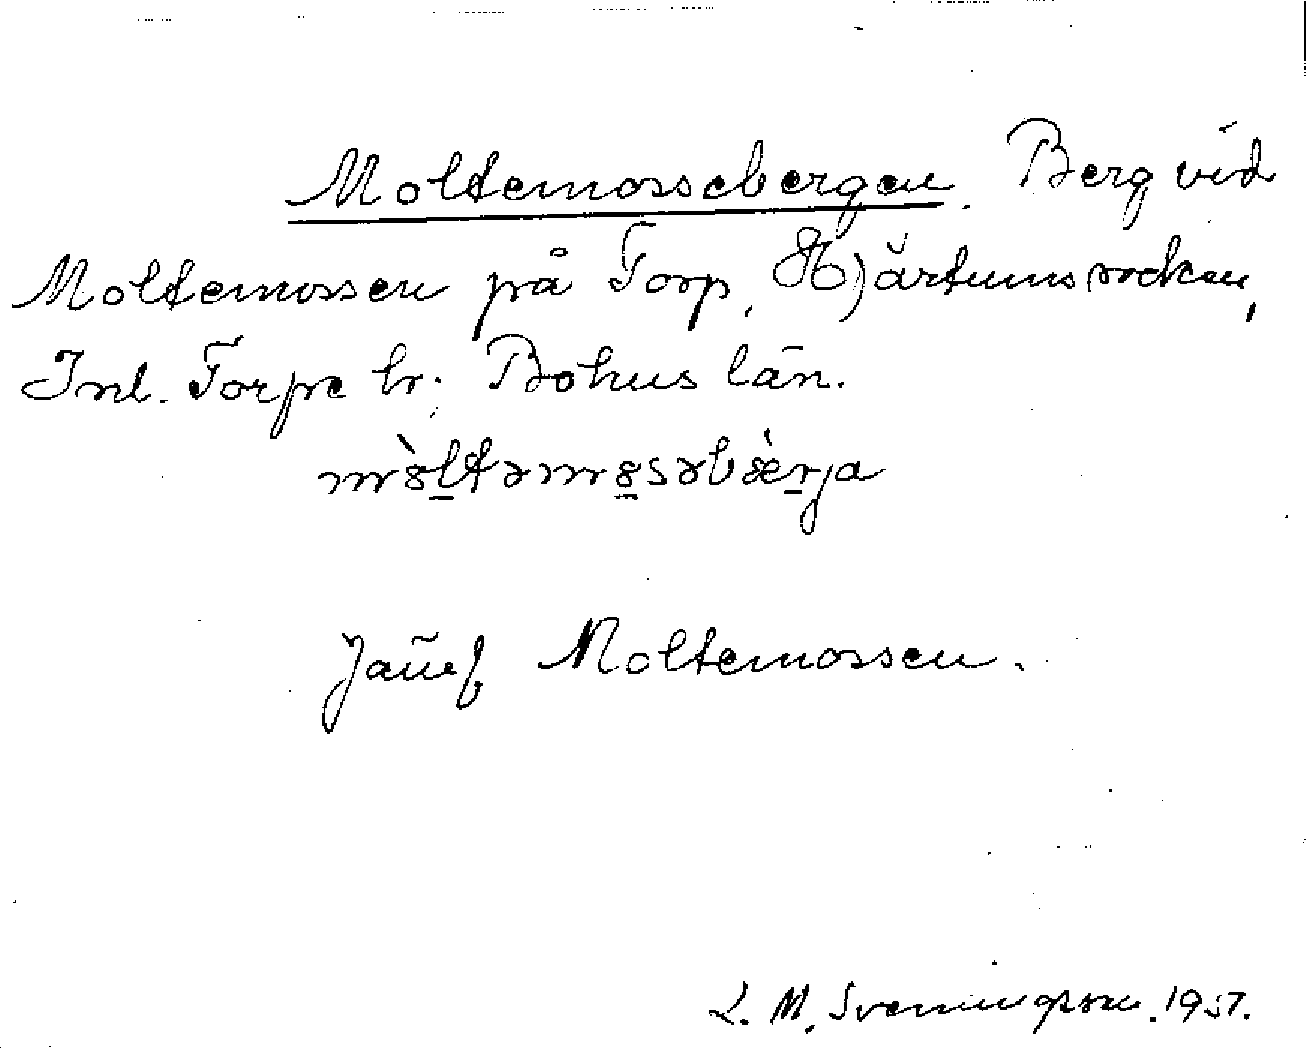 Moltemossebergen. Berg vid
Moltemossen på Torp, Hjärtums socken,
Inl. Torpe hr. Bohus län.
Jämf Moltemossen.
L. M. Svenningsson. 1957.